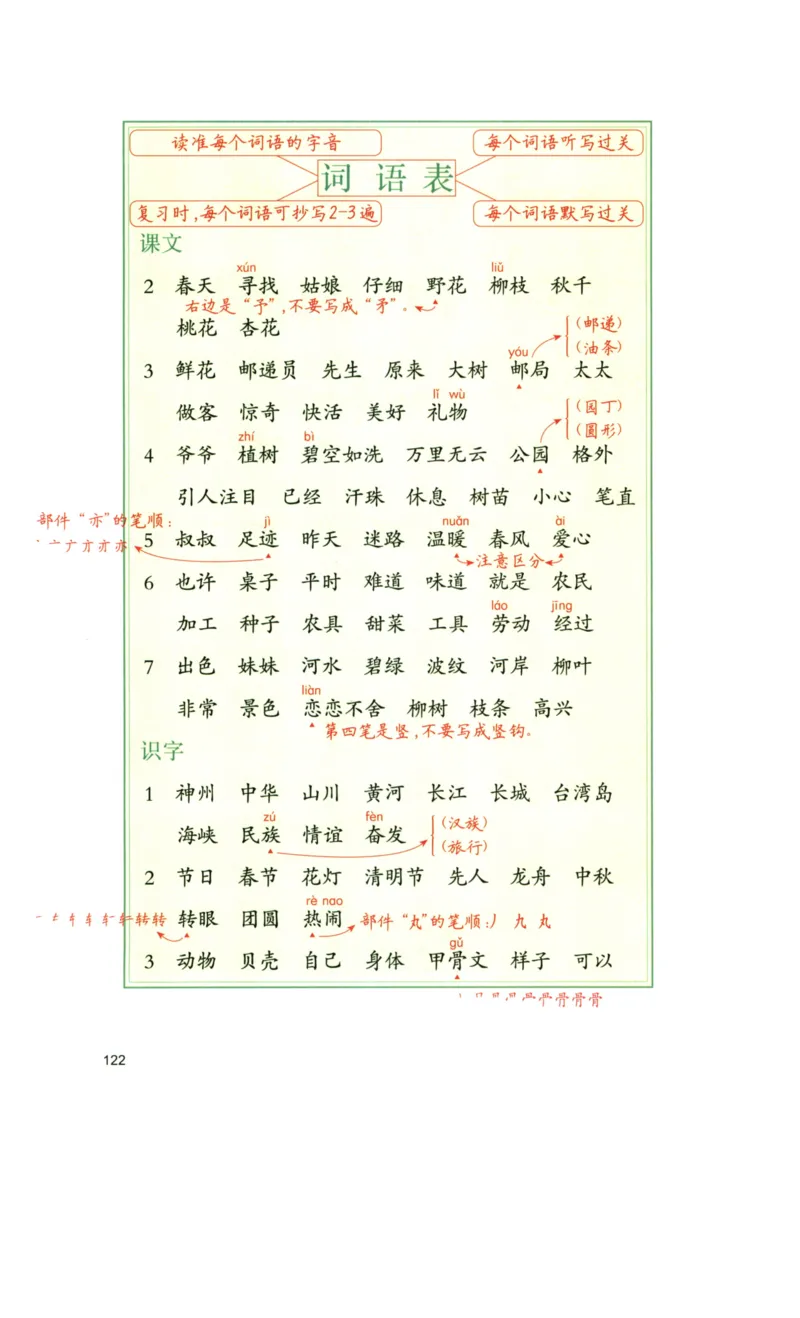 读准每个词语的字音
每个词语听写过关
词 语 表
复习时,每个词语可抄写2-3遍
每个词语默写过关
课文
xún liǔ
2 春天 寻找 姑娘 仔细 野花 柳枝 秋千
右边是“予”,不要写成“矛”。
桃花 杏花
(邮递)
(油条)
yóu
3 鲜花 邮递员 先生 原来 大树 邮局 太太
lǐ wù
做客 惊奇 快活 美好 礼物
(园丁)
(圆形)
zhí bì
4 爷爷 植树 碧空如洗 万里无云 公园 格外
引人注目 已经 汗珠 休息 树苗 小心 笔直
部件“亦”的笔顺:
jì nuǎn ài
5 叔叔 足迹 昨天 迷路 温暖 春风 爱心
注意区分
6 也许 桌子 平时 难道 味道 就是 农民
láo jīng
加工 种子 农具 甜菜 工具 劳动 经过
7 出色 妹妹 河水 碧绿 波纹 河岸 柳叶
liàn
非常 景色 恋恋不舍 柳树 枝条 高兴
第四笔是竖,不要写成竖钩。
识字
1 神州 中华 山川 黄河 长江 长城 台湾岛
zú fèn
海峡 民族 情谊 奋发
(汉族)
(旅行)
2 节日 春节 花灯 清明节 先人 龙舟 中秋
rè nao
转眼 团圆 热闹
部件“丸”的笔顺:丿 九 丸
gǔ
3 动物 贝壳 自己 身体 甲骨文 样子 可以
122